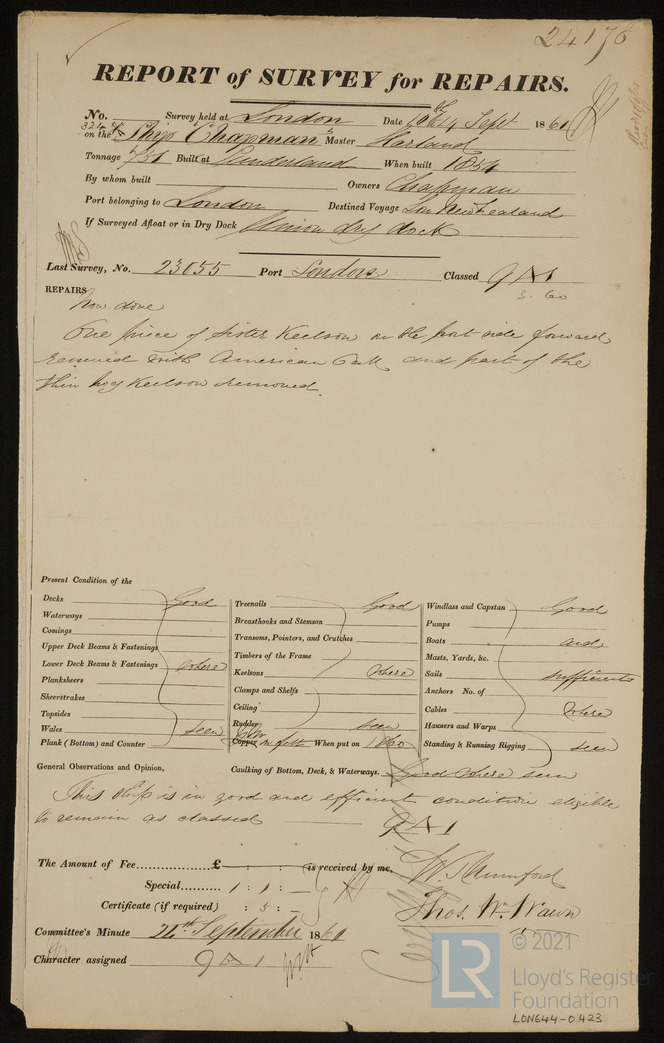 24176
REPORT of SURVEY for REPAIRS.
No. Survey held at London Date 14 Sept 1861
324 on the Ship Chapman Master Harland
Tonnage Built at Sunderland When built 1854
By whom built Owners Chapman
Port belonging to London Destined Voyage Lon New Zealand
If Surveyed Afloat or in Dry Dock Union dry dock
Last Survey, No. 23055 Port London Classed 9 A 1
3. 60
REPAIRS Now done
One piece of Sister Keelson on the port side forward
renewed with American Oak and part of the
thin Keelson removed.
Present Condition of the
Decks Good
Waterways
Comings
Upper Deck Beams & Fastenings
Lower Deck Beams & Fastenings where
Planksheers
Sheerstrakes
Topsides
Wales seen
Plank (Bottom) and Counter
Treenails Good
Breasthooks and Stemson
Transoms, Pointers, and Crutches
Timbers of the Frame
Keelsons where
Clamps and Shelfs
Ceiling
Rudder seen
Copper on felt When put on 1860
Windlass and Capstan Good
Pumps
Boats and
Masts, Yards, &c.
Sails sufficient
Anchors No. of
Cables where
Hawsers and Warps
Standing & Running Rigging seen
General Observations and Opinion, Caulking of Bottom, Deck, & Waterways. Good where seen
This ship is in good and efficient condition eligible
to remain as classed 9 A 1
The Amount of Fee £ : : is received by me,
Special 1 : 1 : —
Certificate (if required) : 5 : —
W. S. Mumford
Thos. Wm. Wawn
Committee's Minute 24th September 1861
Character assigned 9 A 1
LR © 2021
Lloyd's Register
Foundation
LON644-0423